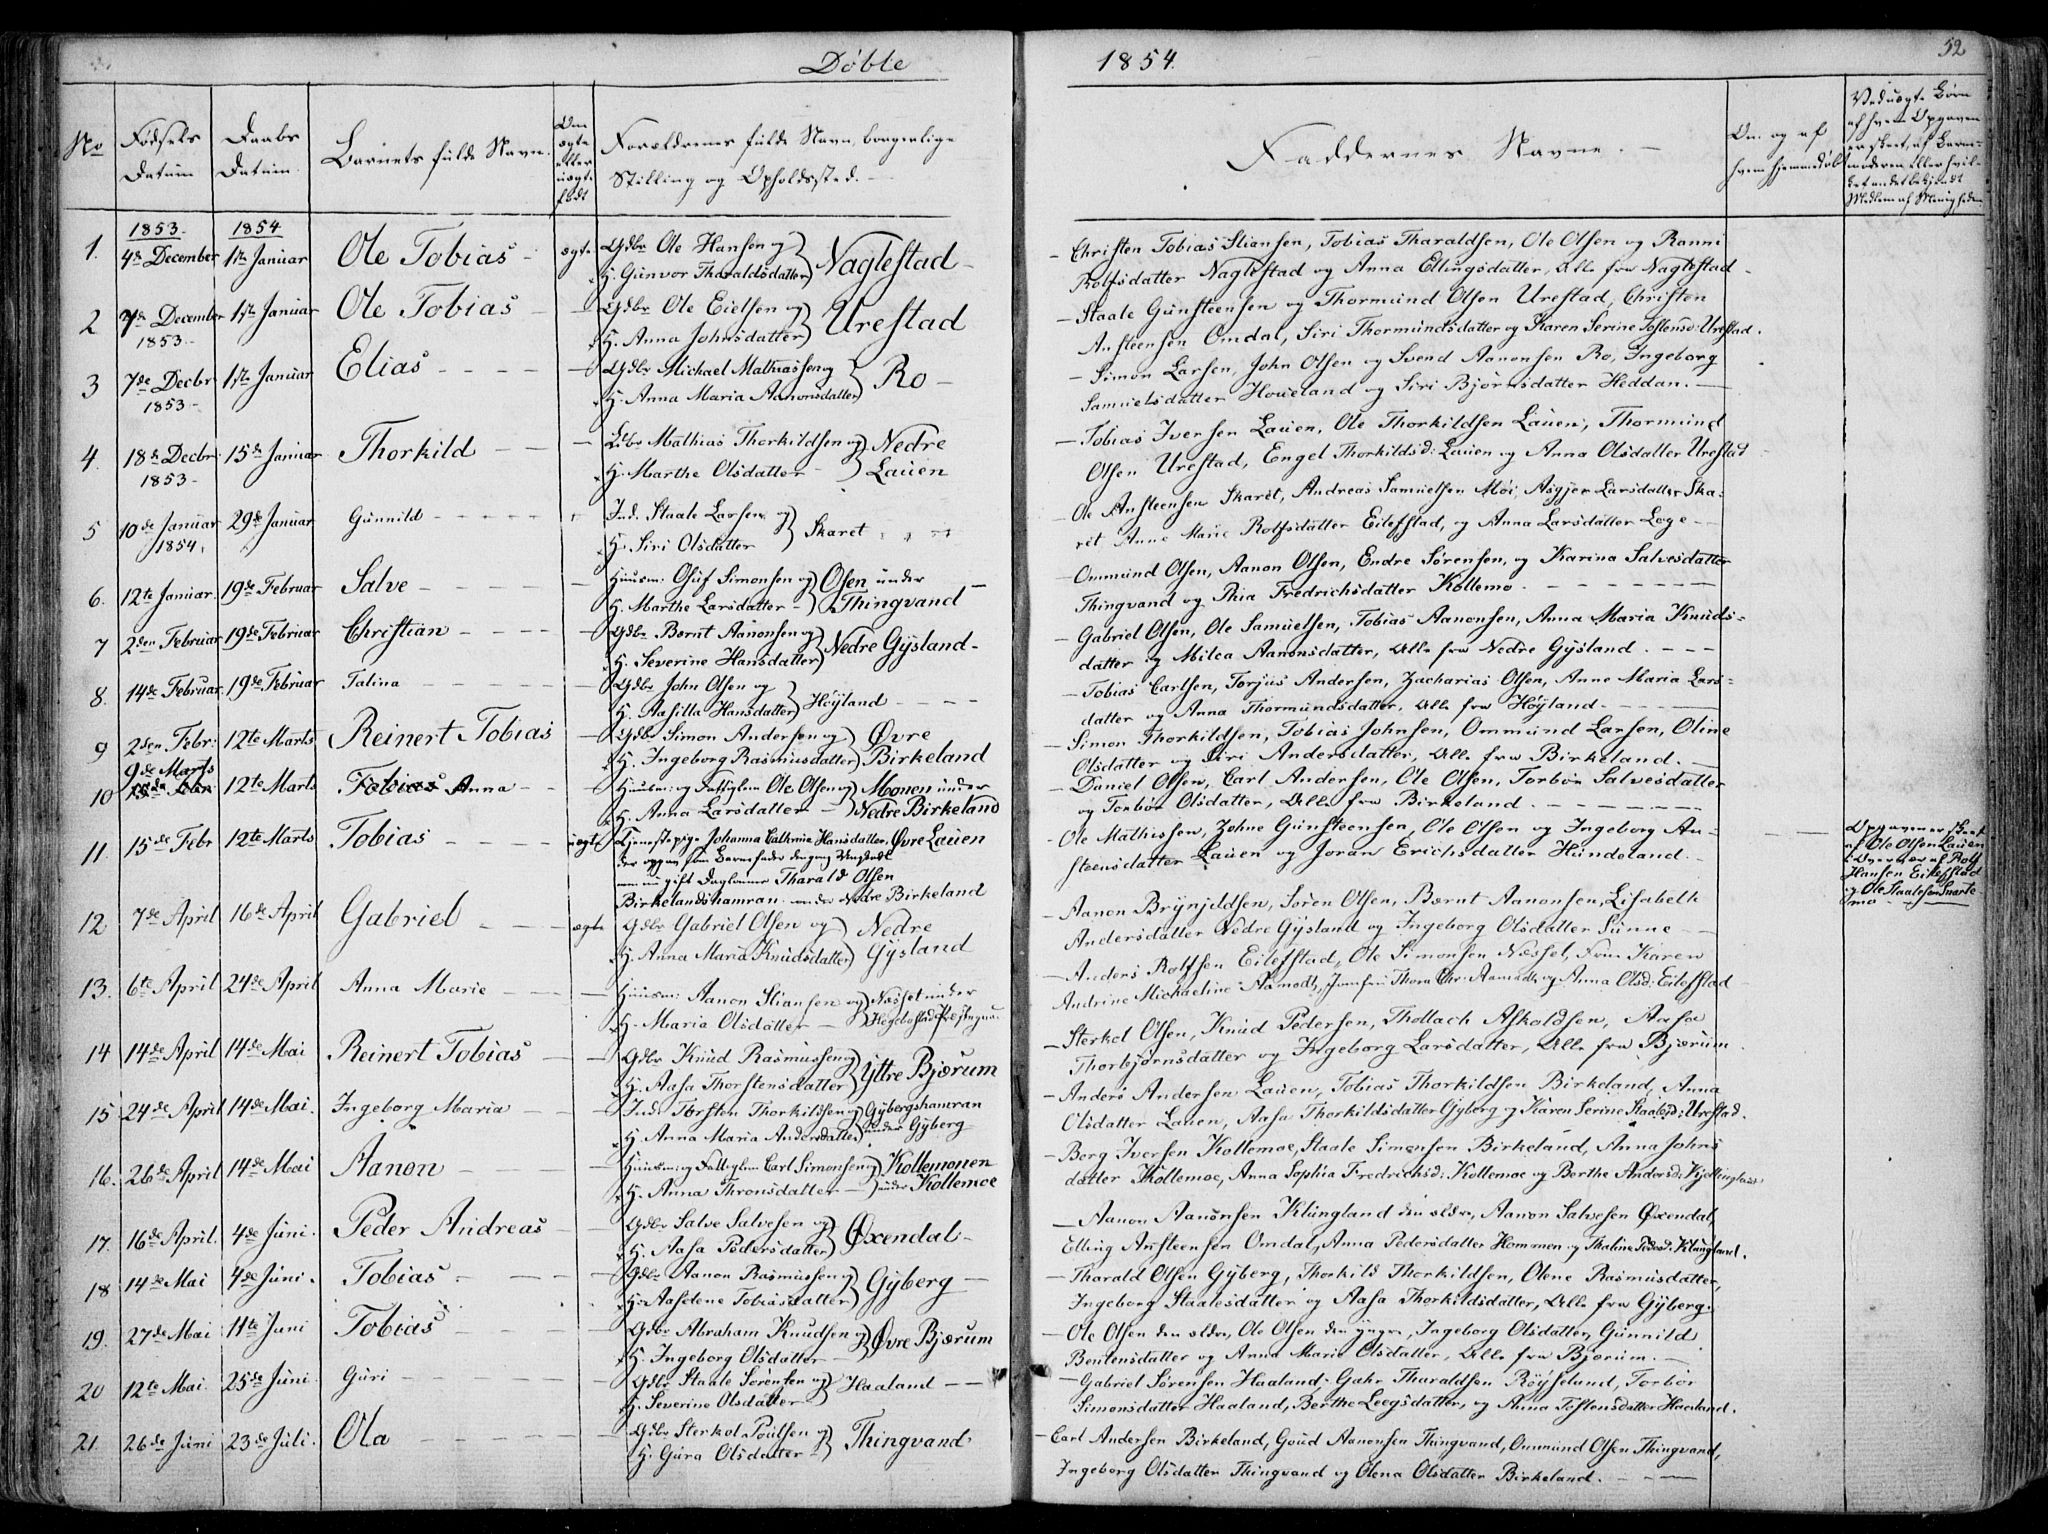 Døbte
1854.
52
No
Fødsels Datum
Daabs Datum
Barnets fulde Navn.
Om ægte eller uægte født
Forældrenes fulde Navn, borgerlige Stilling og Opholdssted.
Faddernes Navne.
Om og af hvem hjemmedøbt
1853.
1854
1. 4de December 1ste Januar Ole Tobias ægte Gdbr Ole Hansen og
H. Gunvor Tharaldsdatter Naglestad
Christen Tobias Stiansen, Tobias Tharaldsen, Ole Olsen og Ranni
Rolfsdatter Naglestad og Anna Ellingsdatter, Alle fra Naglestad
2 7de December 1ste Januar Ole Tobias Gdbr Ole Eielsen og
1853 H. Anna Johnsdatter Urestad
Staale Gunsteensen og Thormund Olsen Urestad, Christen
Ansteensen Omdal, Siri Thormundsdatter og Karen Serine Tostensd: Urestad.
3 7de Decbr 1ste Januar Elias Gdbr Michael Mathiassen og
1853 H. Anna Maria Aanonsdatter Ro
Simon Larsen, John Olsen og Svend Aanonsen Ro, Ingeborg
Samuelsdatter Houeland og Siri Bjørnsdatter Heddan.
4. 18de Decbr 15de Januar Thorkild Mathias Thorkildsen og
1853 H. Marthe Olsdatter Nedre Lauen
Tobias Iversen Lauen, Ole Thorkildsen Lauen, Thormund
Olsen Urestad, Engel Thorkildsd: Lauen og Anna Olsdatter Urestad
5 10de Januar 29de Januar Gunnild Ind. Staale Larsen og
1854. H. Siri Olsdatter Skaret
Ole Ansteensen Skaret, Andreas Samuelsen Møi, Asgjer Larsdatter Ska-
ret Anne Marie Rolfsdatter Eilefstad, og Anna Larsdatter Lege
6. 12te Januar. 19de Februar Salve Huusm: Oluf Simonsen og
H. Marthe Larsdatter Osen under Thingvand
Ommund Olsen, Aanon Olsen, Endre Sørensen, og Karina Salvesdatter
Thingvand og Thia Fredrichsdatter Kollemo
7 2den Februar 19de Februar Christian Gdbr Bernt Aanonsen og
H. Severine Hansdatter Nedre Gysland
Gabriel Olsen, Ole Samuelsen, Tobias Aanonsen, Anna Maria Knuds-
datter og Milea Aanonsdatter, Alle fra Nedre Gysland.
8. 14de Februar. 19de Februar Talina Gdbr John Olsen og
H. Aasilla Hansdatter Høyland
Tobias Carlsen, Torjus Andersen, Zacharias Olsen, Anne Maria Lars-
datter og Anna Thormundsdatter, Alle fra Høyland
9 2den Febr: 12te Marts Reinert Tobias Gdbr Simon Andersen og
H. Ingeborg Rasmusdatter Øvre Birkeland
Simon Thorkildsen, Tobias Johnsen, Ommund Larsen, Oline
Olsdatter og Siri Andersdatter, Alle fra Birkeland.
10 9de Marts 12te Marts Anna Huusm: og Ole Olsen og
H. Anna Larsdatter Monen under Nedre Birkeland
Daniel Olsen, Carl Andersen, Ole Olsen, Torbor Salvesdatter
og Torbor Olsdatter, Alle fra Birkeland.
11. 15de Febr 12te Marts Tobias uægte Tjenestepige Johanna Cathrine Hansdatter, Øvre Lauen
der opgav som Barnefader den gang
nu gift Daglønner Tharald Olsen
Birkelandshamran under Nedre Birkeland
Ole Mathissen, Zohne Gunsteensen, Ole Olsen og Ingeborg An-
steensdatter Lauen og Joran Erichsdatter Hundeland.
Opgaven er skeet
af Ole Olsen Lauen
i Overvær af Rolf
Hansen Eilefstad
og Ole Staalesen Snarte
mo
12 7de April 16de April Gabriel ægte Gdbr Gabriel Olsen og
H. Anna Maria Knudsdatter Nedre Gysland
Aanon Brynjildsen, Søren Olsen, Bernt Aanonsen, Lisabeth
Andersdatter Nedre Gysland og Ingeborg Olsdatter Sunne
13. 6te April 24de April Anna Marie Huusm: Aanon Stiansen og
H. Maria Olsdatter Næsset under
Anders Rolfsen Eilefstad, Ole Simonsen Næsset, Karen
Andrine Michaeline Aamodt, Jomfru Thora Chr: Aamodt og Anna Olsd: Eilefstad
14 14de April 14de Mai Reinert Tobias Gdbr Knud Rasmussen og
H. Aasa Thorstensdatter Yttre Bjærum
Sterkel Olsen, Knud Pedersen, Thollach Askoldsen, Aasa
Thorbjørnsdatter og Ingeborg Larsdatter, Alle fra Bjærum
15 24de April 14de Mai. Ingeborg Maria Ind: Torsten Thorkildsen og
H. Anna Maria Andersdatter Gybergshamran under Gyberg
Anders Andersen Lauen, Tobias Thorkildsen Birkeland, Anna
Olsdatter Lauen, Aasa Thorkildsdatter Gyberg og Karen Serine Staalesd: Urestad.
16. 26de April 14de Mai Aanon Huusm: og Carl Simonsen og
H. Anna Thronsdatter Kollemonen under Kollemoe
Berg Iversen Kollemoe, Staale Simonsen Birkeland, Anna Johns
datter Kollemoe, Anna Sophia Fredrichsd: Kollemoe og Berthe Andersd:
17. 16de April. 4de Juni. Peder Andreas Gdbr Salve Salvesen og
H. Aasa Pedersdatter Øxendal
Aanon Aanonsen Klungland den eldre, Aanon Salvesen Øxendal,
Elling Ansteensen Omdal, Anna Pedersdatter Hommen og Thaline Pedersd: Klungland.
18 14de Mai 4de Juni. Tobias Gdbr Aanon Rasmussen og
H. Aaselene Tobiasdatter Gyberg
Tharald Olsen Gyberg, Thorkild Thorkildsen, Olene Rasmusdatter,
Ingeborg Staalesdatter og Aasa Thorkildsdatter, Alle fra Gyberg.
19. 27de Mai 11te Juni Tobias Gdbr Abraham Knudsen og
H. Ingeborg Olsdatter Øvre Bjærum
Ole Olsen den eldre, Ole Olsen den yngre, Ingeborg Olsdatter, Gunnild
Bentensdatter og Anna Marie Olsdatter, Alle fra Bjærum.
20 12te Mai. 25de Juni Guri Gdbr Staale Sørensen og
H. Severine Olsdatter Haaland
Gabriel Sørensen Haaland, Gahr Tharaldsen Røyseland, Torbor
Simonsdatter Haaland, Berthe Leegsdatter, og Anna Tostensdatter Haaland.
21. 26de Juni 23de Juli. Ola Gdbr Sterkel Poulsen og
H. Gura Olsdatter Thingvand
Carl Andersen Birkeland, Goud Aanonsen Thingvand, Ommund Olsen Thingvand,
Ingeborg Olsdatter Thingvand og Olena Olsdatter Birkeland.